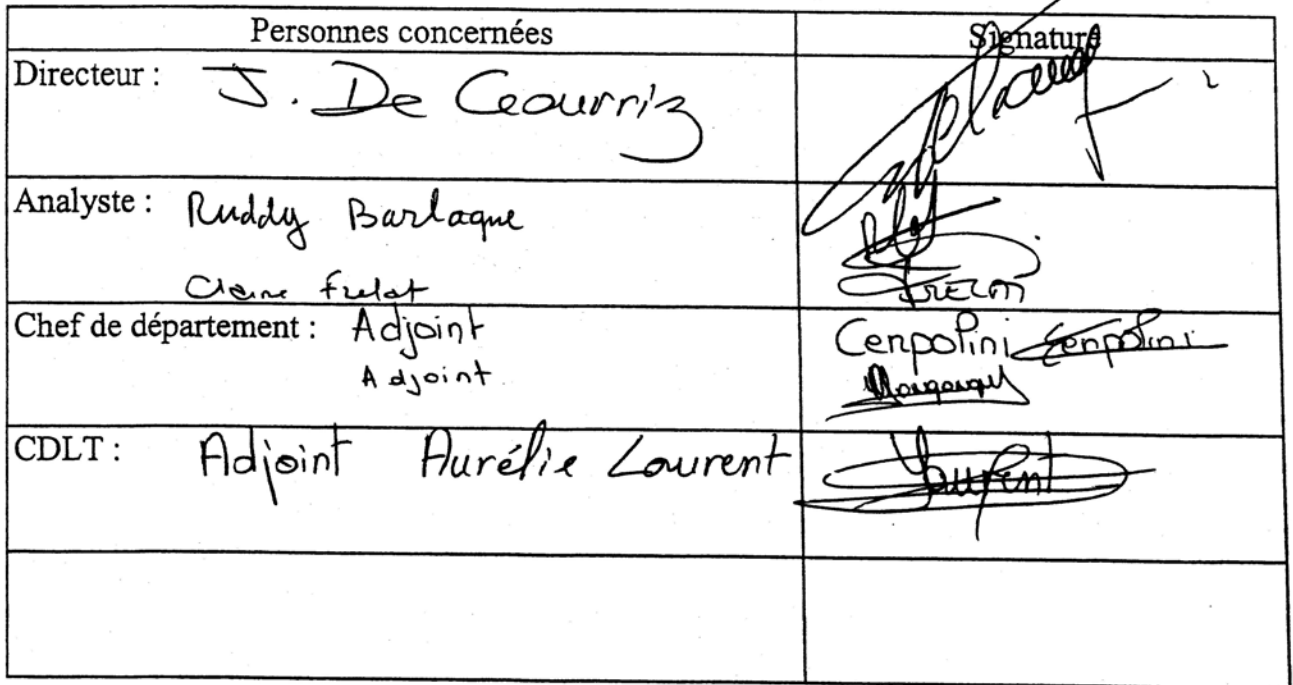 Personnes concernées Signature
Directeur : J. De Ceaurriz
Analyste : Ruddy Barlagne
Claire Frelat FRELAT
Chef de département : Adjoint Cerpolini Cerpolini
Adjoint
CDLT : Adjoint Aurélie Laurent Laurent